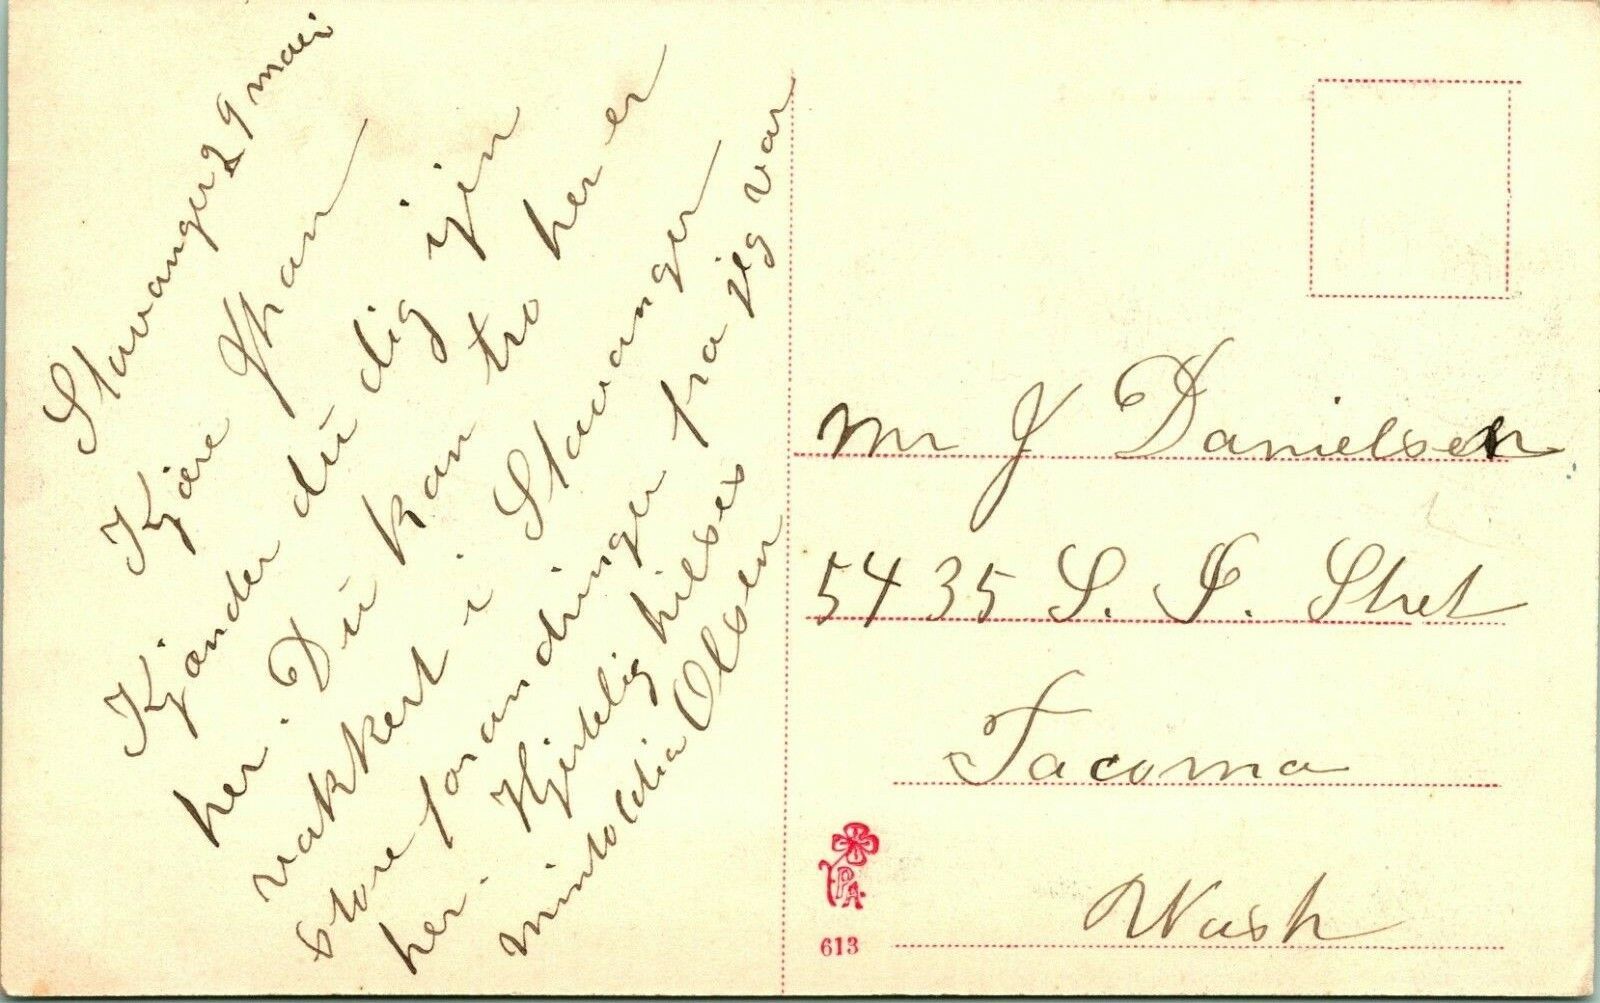 Stavanger 29 mai
Kjære Johan
Kjænder du dig igjen
her. Du kan tro her er
vakkert i Stavanger
store forandringer fra jeg var
her. Hjertelig hilses
Olsen
Mr J Danielsen
5435 S. I. Stret
Tacoma
Wash
PA
613